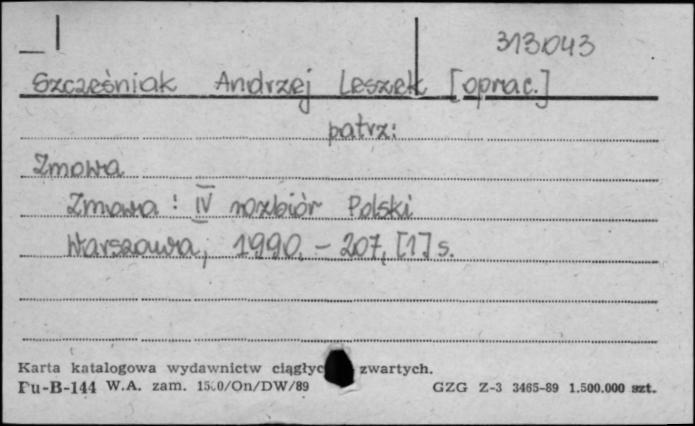 313043
Szcześniak Andrzej Leszek [oprac.]
patrz:
Zmowa
Zmowa : IV rozbiór Polski
Warszawa, 1990. – 207, [1] s.
Karta katalogowa wydawnictw ciągłyc zwartych.
Pu-B-144 W.A. zam. /On/DW/89 GZG Z-3 3465-89 1.500.000 szt.